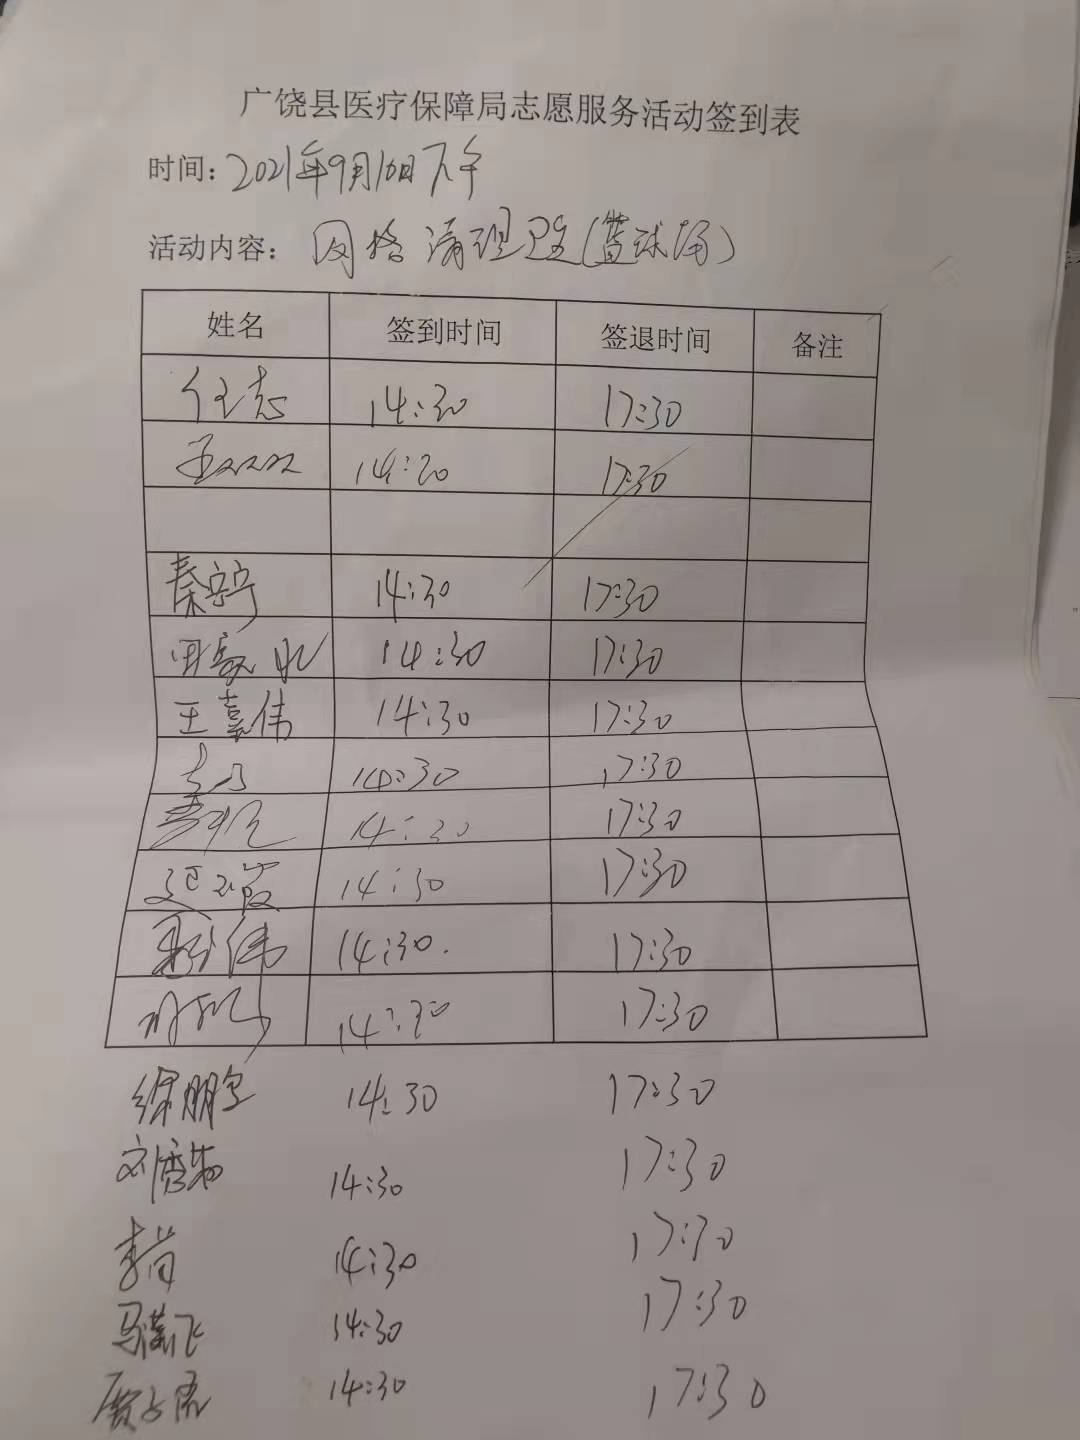 广饶县医疗保障局志愿服务活动签到表
时间：2021年9月10日下午
活动内容：网格清理卫生（篮球场）
姓名 签到时间 签退时间 备注
任志 14:30 17:30
14:20 17:30
秦宁 14:30 17:30
田 14:30 17:30
王嘉伟 14:30 17:30
14:30 17:30
14:30 17:30
14:30 17:30
伟 14:30. 17:30
14:30 17:30
徐鹏 14:30 17:30
刘秀 14:30 17:30
李 14:30 17:30
马 飞 14:30 17:30
14:30 17:30